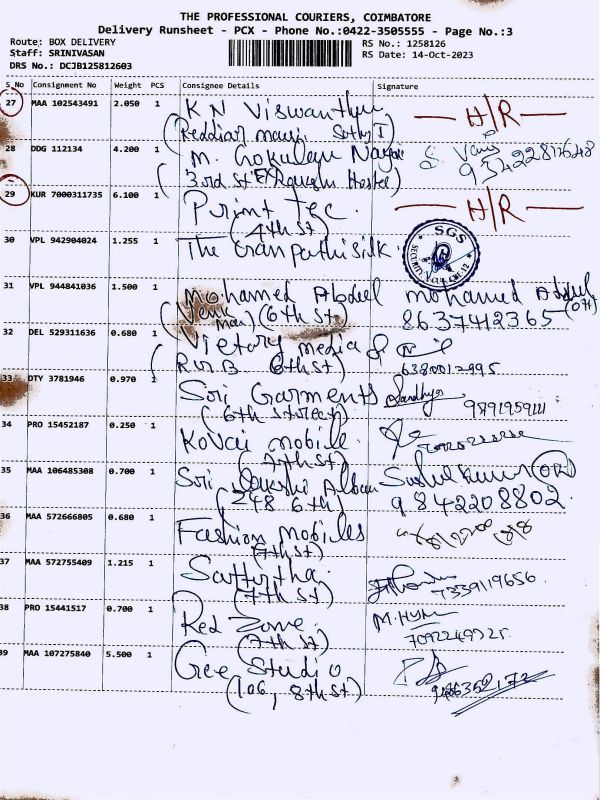 THE PROFESSIONAL COURIERS, COIMBATORE
Delivery Runsheet - PCX - Phone No.:0422-3505555 - Page No.:3
Route: BOX DELIVERY
RS No.: 1258126
Staff: SRINIVASAN
RS Date: 14-Oct-2023
DRS No.: DCJB125812603
S.No Consignment No Weight PCS Consignee Details Signature
27 MAA 102543491 2.050 1 K N Viswanthan H/R
(Reddiar
28 DDG 112134 4.200 1 M. Gokulan Nagar
(3rd St Hostel)
29 KUR 7000311735 6.100 1 Print Tec. H/R
(4th St)
30 VPL 942904024 1.255 1 The silk. SGS
31 VPL 944841036 1.500 1 Mohamed Abdeel mohamed Abdul
(6th St) 8637412365
32 DEL 529311636 0.680 1 Victory media
(R.V.B 6th St)
33 DTY 3781946 0.970 1 Sri Garments Sandhya
(6th Street)
34 PRO 15452187 0.250 1 Kovai mobile.
(7th St)
35 MAA 106485308 0.700 1 Sri Album Sushil Kumar
(248 6th) 9842208802
36 MAA 572666805 0.680 1 Fashion Mobiles
(7th St)
37 MAA 572755409 1.215 1
(7th St) 7339119656
38 PRO 15441517 0.700 1 Red Zone.
(7th St)
39 MAA 107275840 5.500 1 Gee Studio
(106, 8th St)